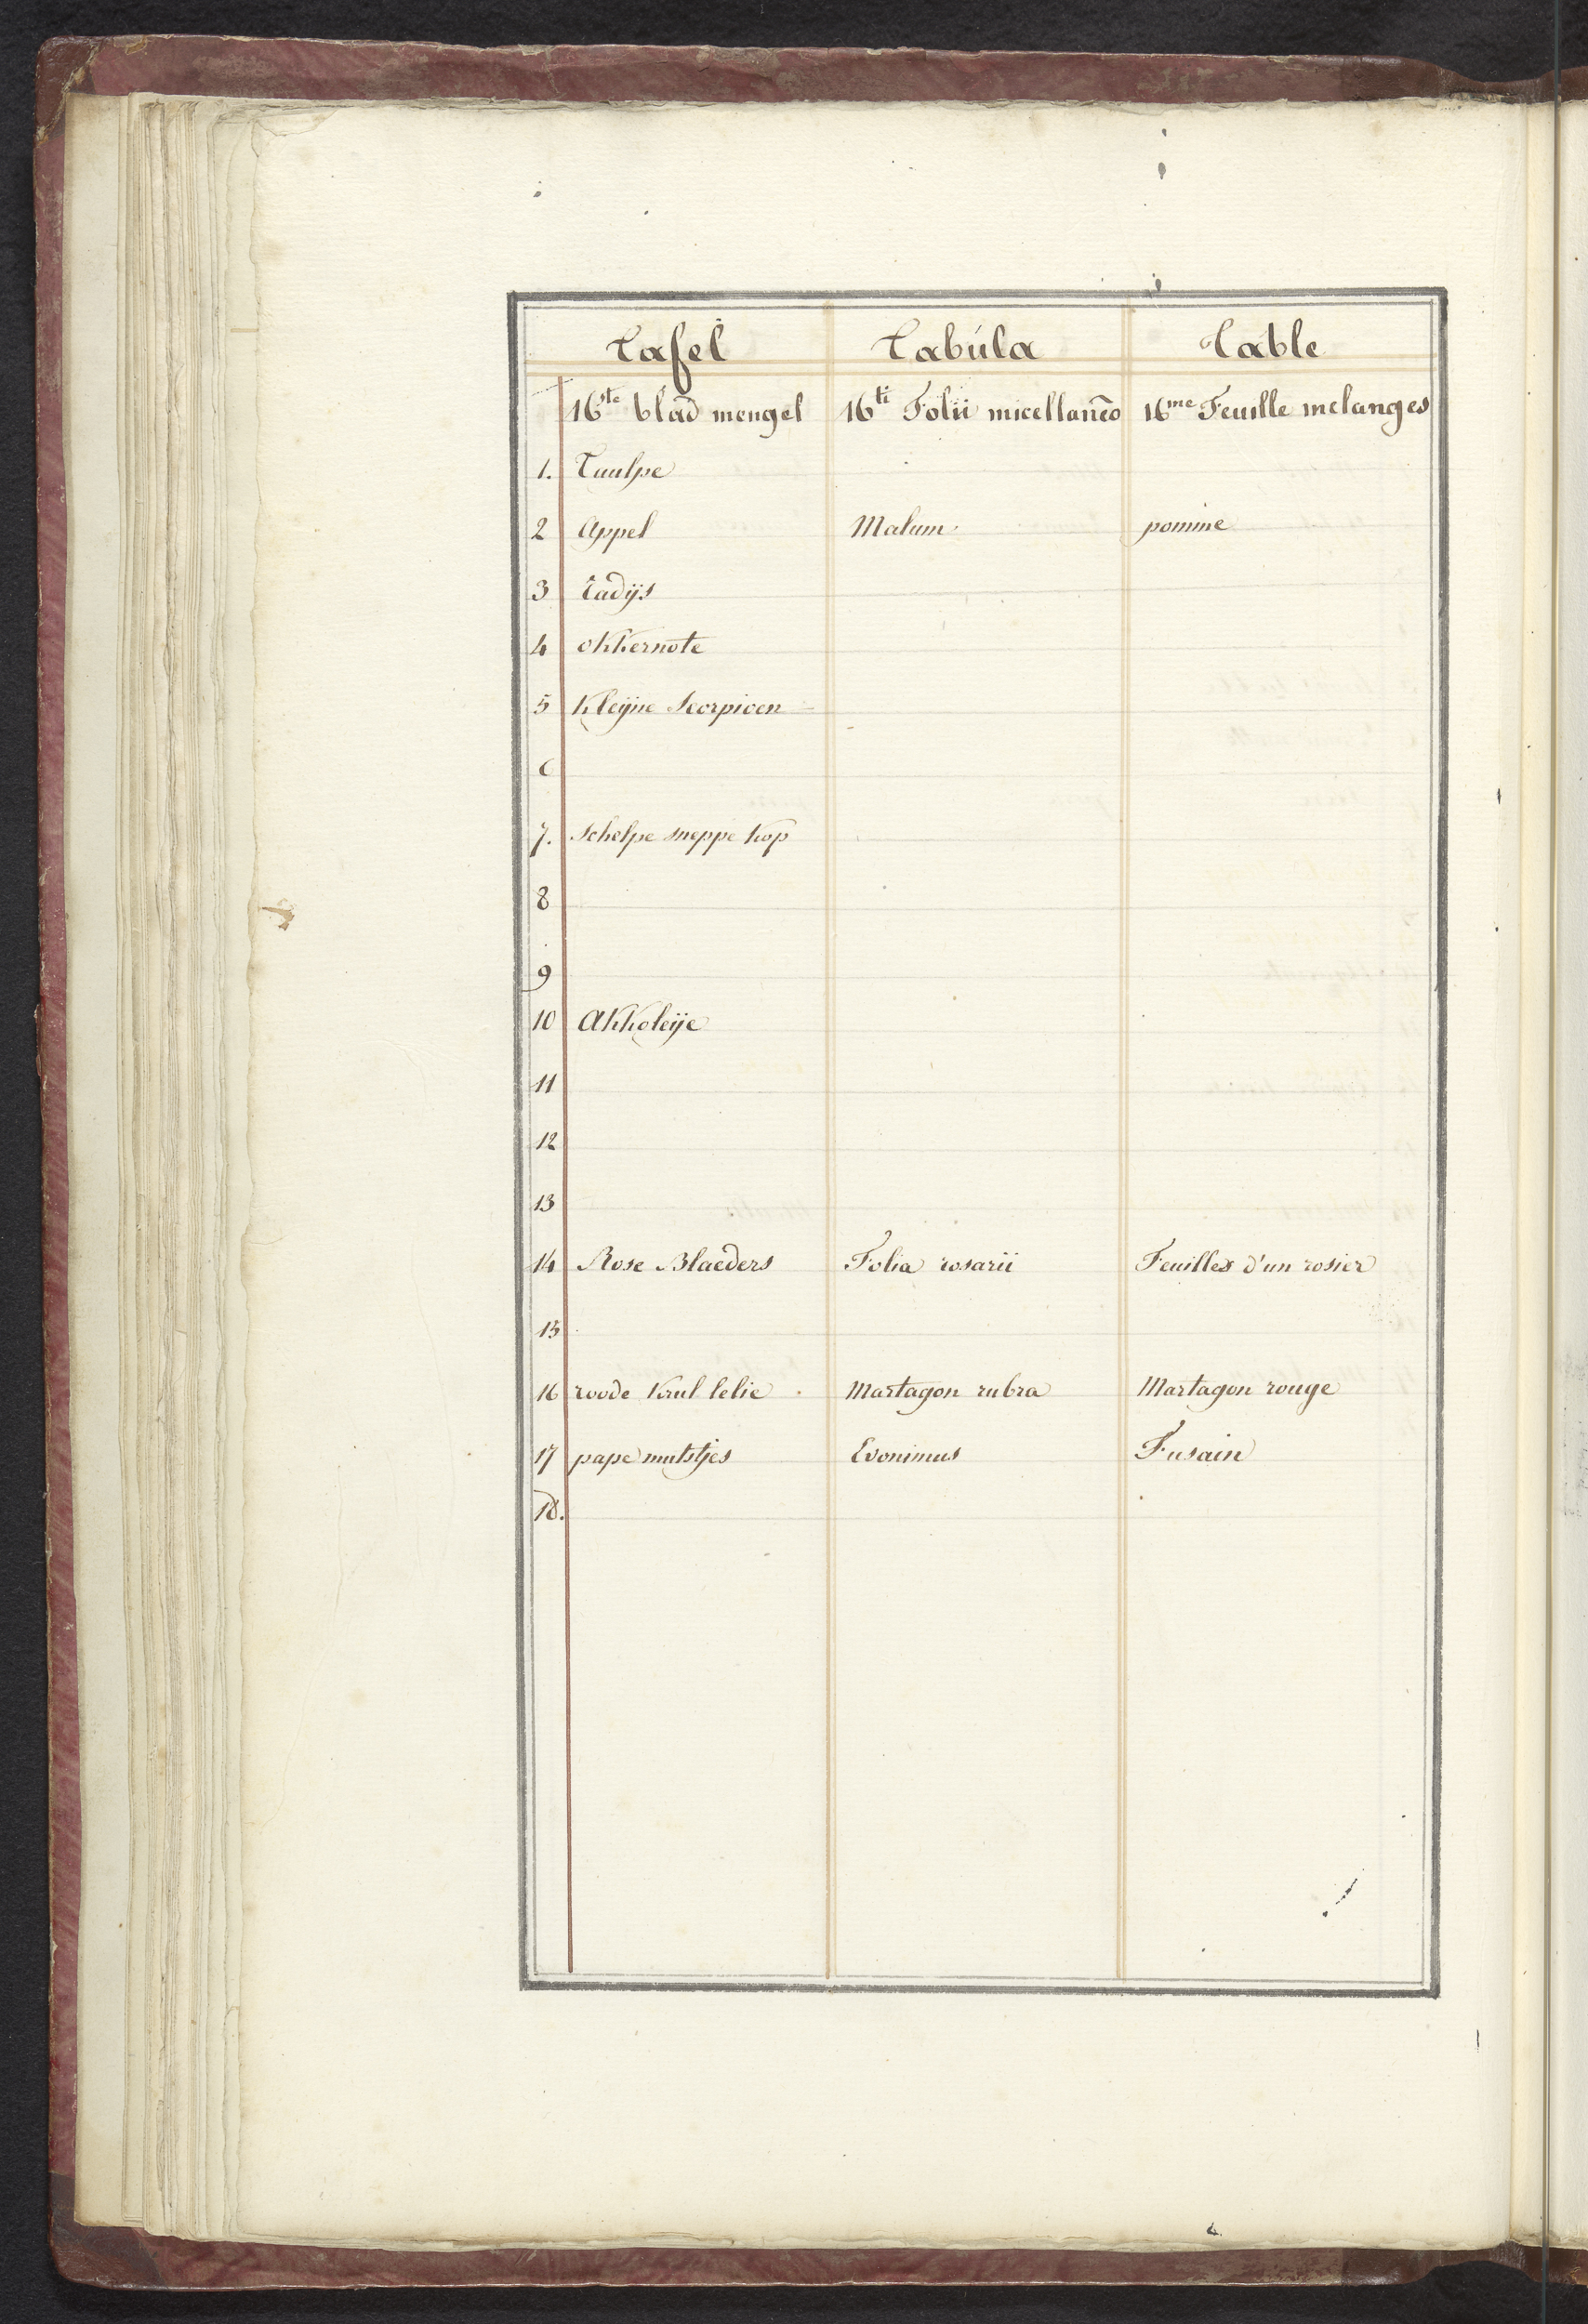 Tafel Tabúla Table
16te blad mengel 16ti Folii micellanēo 16me Feuille melanges
1. Tuulpe
2 Appel Malum pomme
3 radijs
4 okkernote
5 Kleijne Scorpioen
6
7. Schelpe sneppe Kop
8
9
10 Akkoleije
11
12
13
14 Rose Blaeders Folia rosarii Feuilles d'un rosier
15
16 roode Krul lelie Martagon rubra Martagon rouge
17 pape mutstjes Evonimus Fusain
18.